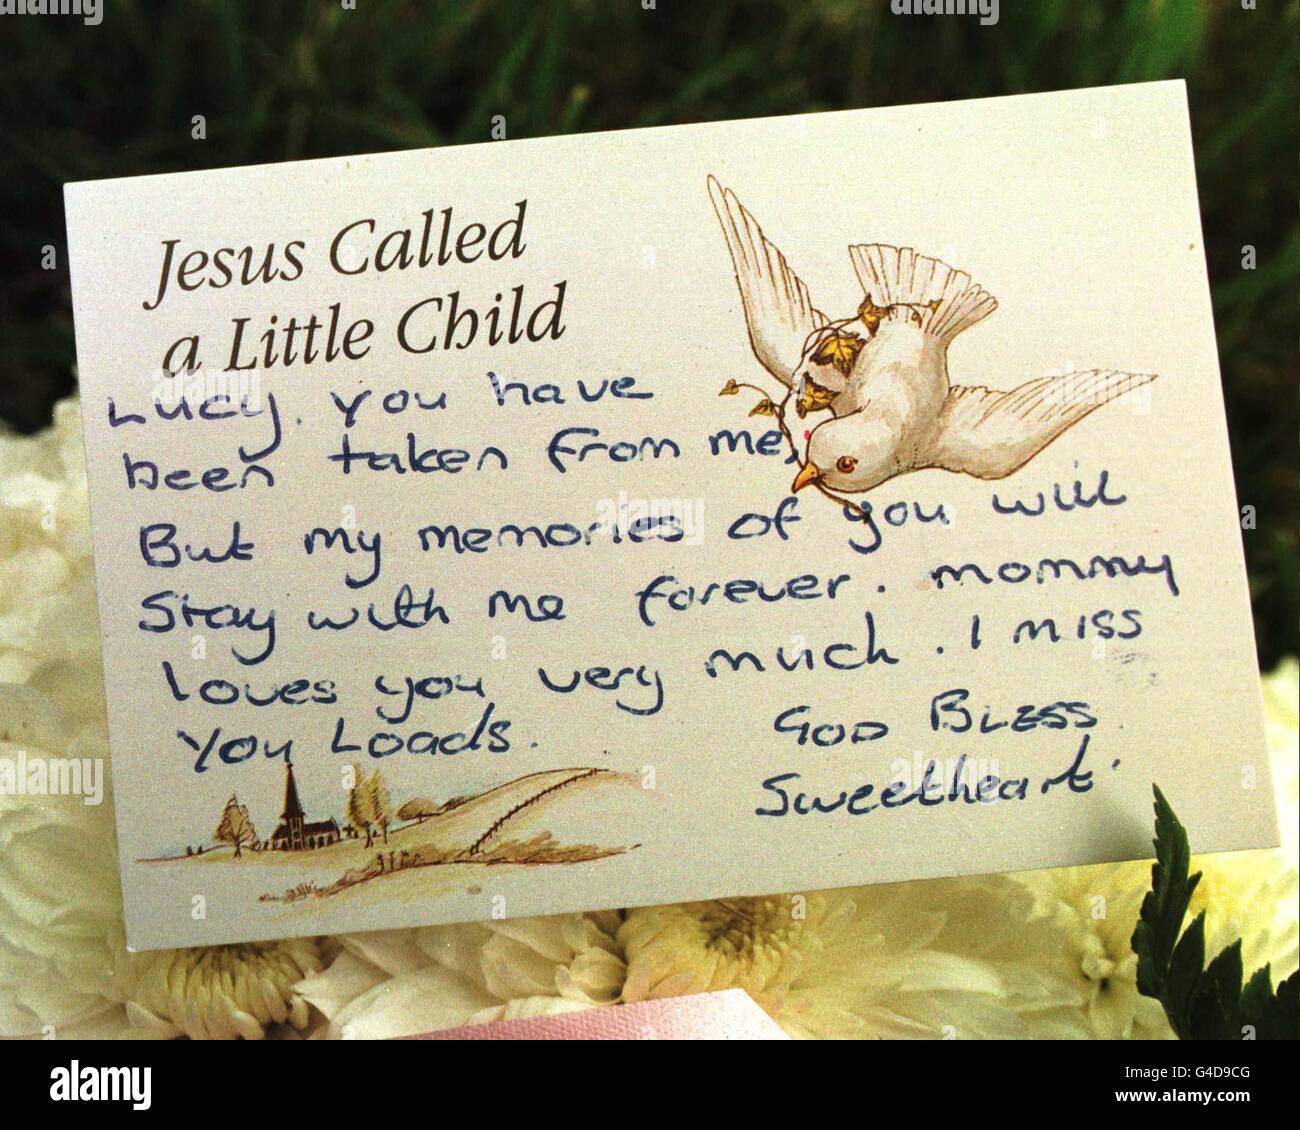 Jesus Called
a Little Child
Lucy. You have
been taken from me,
But my memories of you will
Stay with me forever. mommy
loves you very much. I miss
You Loads.
GOD BLESS.
Sweetheart.
alamy stock photo
G4D9CG
www.alamy.com